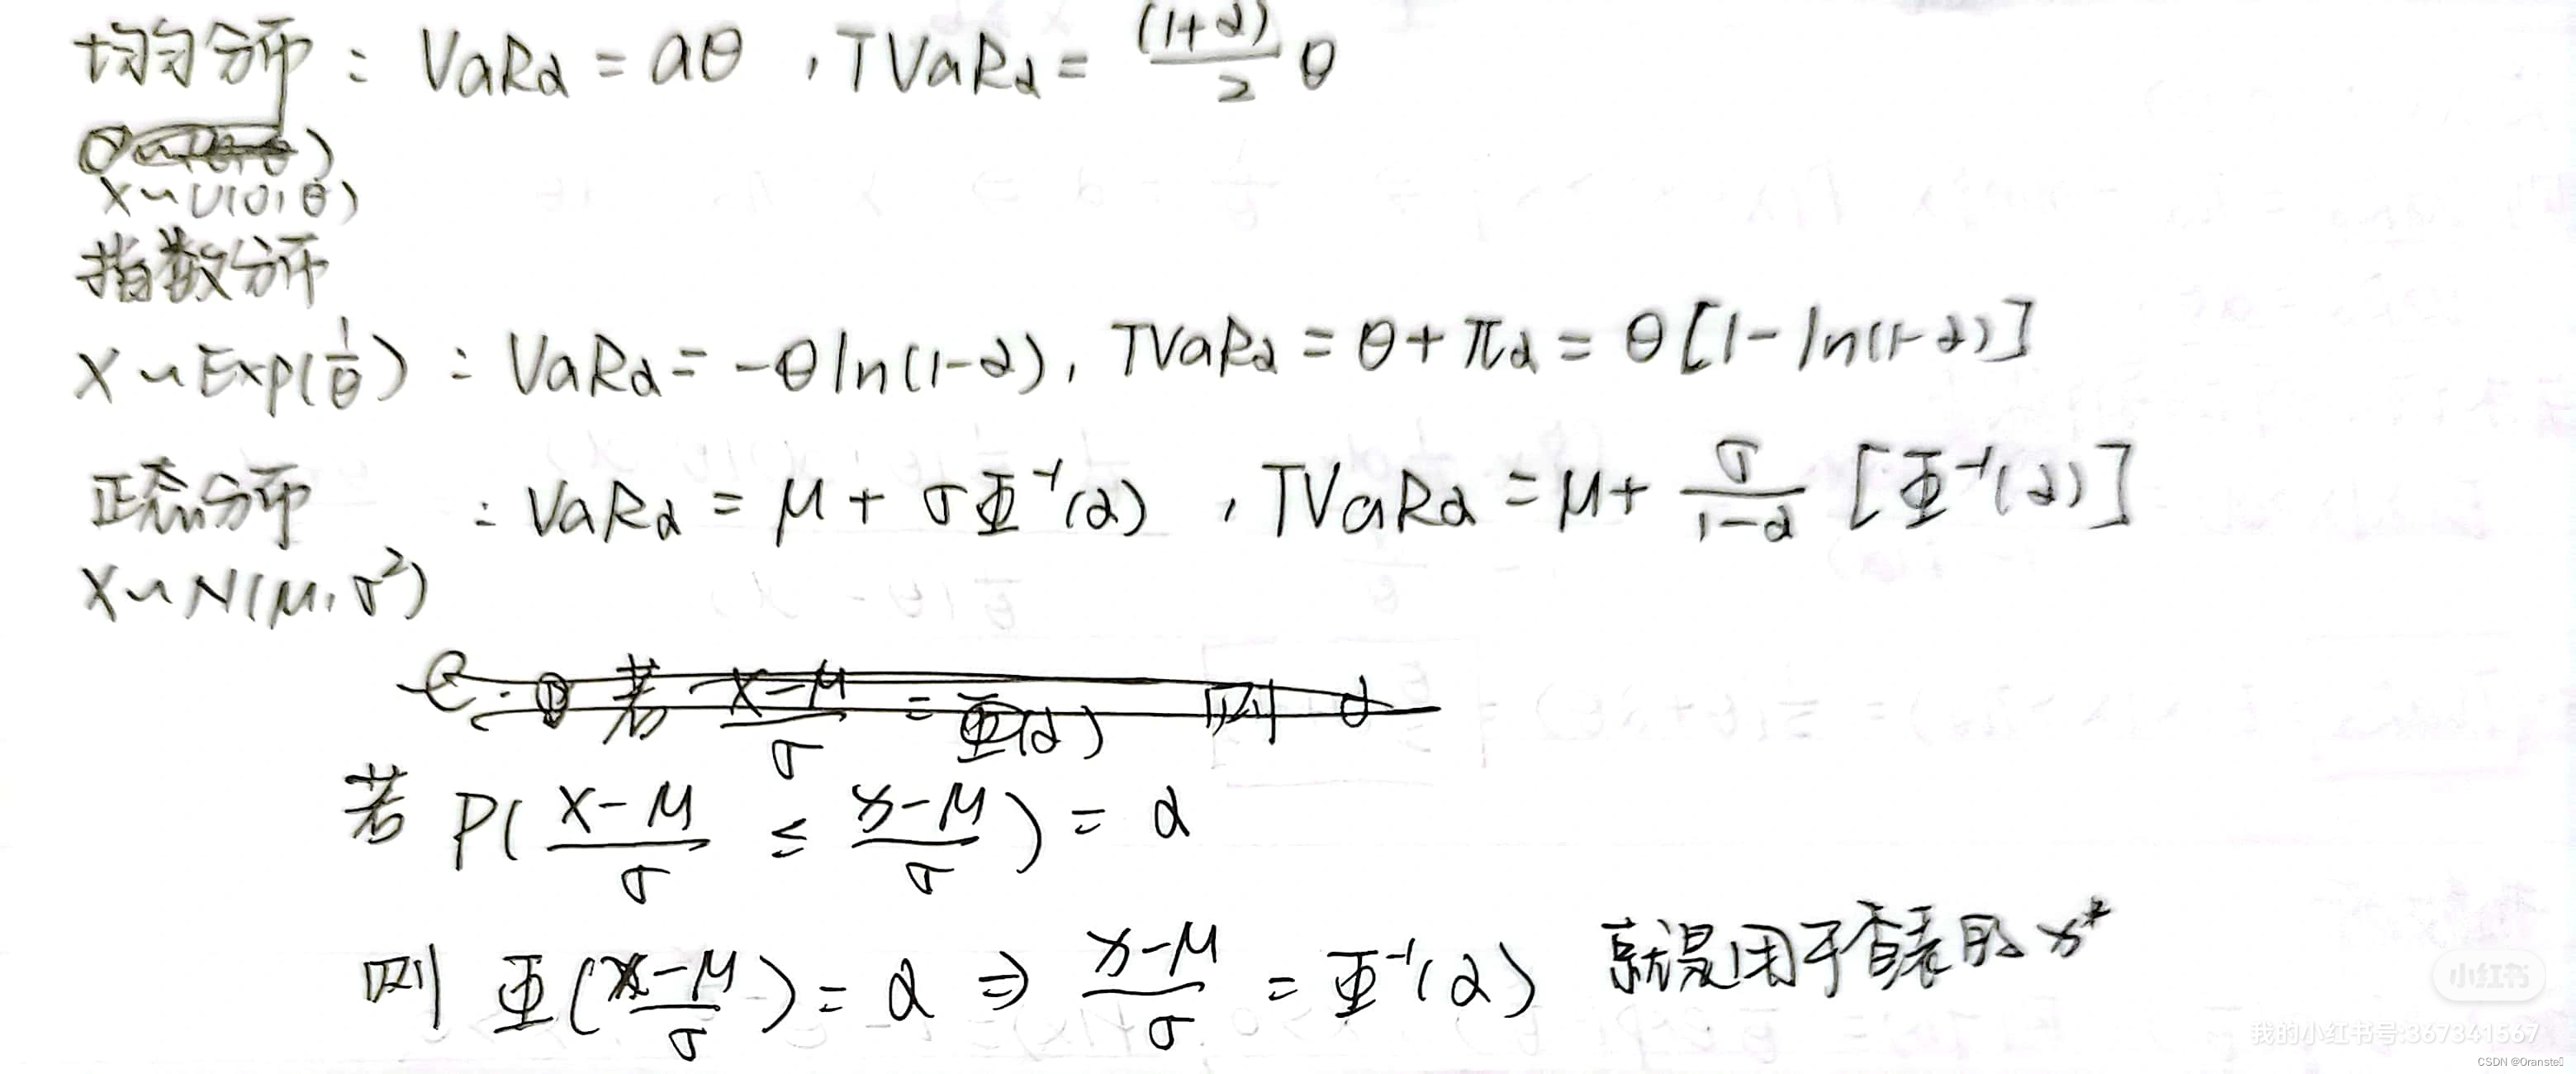 均匀分布 : VaRα = aθ , TVaRα = (1+α)/2 θ
X~U(0,θ)
指数分布
X~Exp(1/θ) : VaRα = -θln(1-α), TVaRα = θ+πα = θ[1-ln(1-α)]
正态分布 : VaRα = μ + σΦ⁻¹(α) , TVaRα = μ + σ/(1-α) [Φ⁻¹(α)]
X~N(μ, σ²)
① 若 (X-μ)/σ = Φ(α) 则 α
若 P( (X-μ)/σ ≤ (x-μ)/σ ) = α
则 Φ( (x-μ)/σ ) = α ⇒ (x-μ)/σ = Φ⁻¹(α) 就是用于查表的 x*
小红书
我的小红书号:367341567
CSDN @Oranste